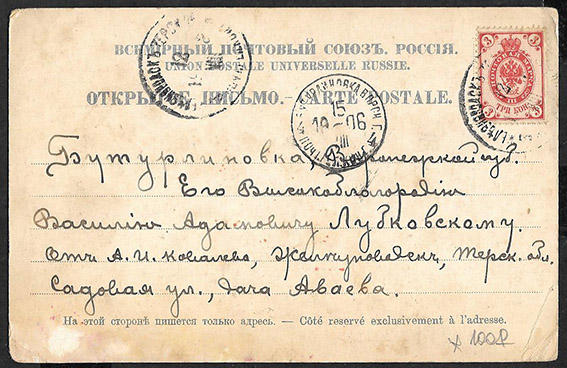 ВСЕМІРНЫЙ ПОЧТОВЫЙ СОЮЗЪ. РОССІЯ.
UNION POSTALE UNIVERSELLE RUSSIE.
ОТКРЫТОЕ ПИСЬМО. — CARTE POSTALE.
3 3
3 ТРИ КОП. 3
15
19 06
III
Бутурлиновка, губ.
Его Высокоблагородію
Василію Адамовичу Лубковскому.
Отъ А. И. Ковалева, Терск. обл.
Садовая ул., дача Аваева.
На этой сторонѣ пишется только адресъ. — Côté reservé exclusivement à l'adresse.
100